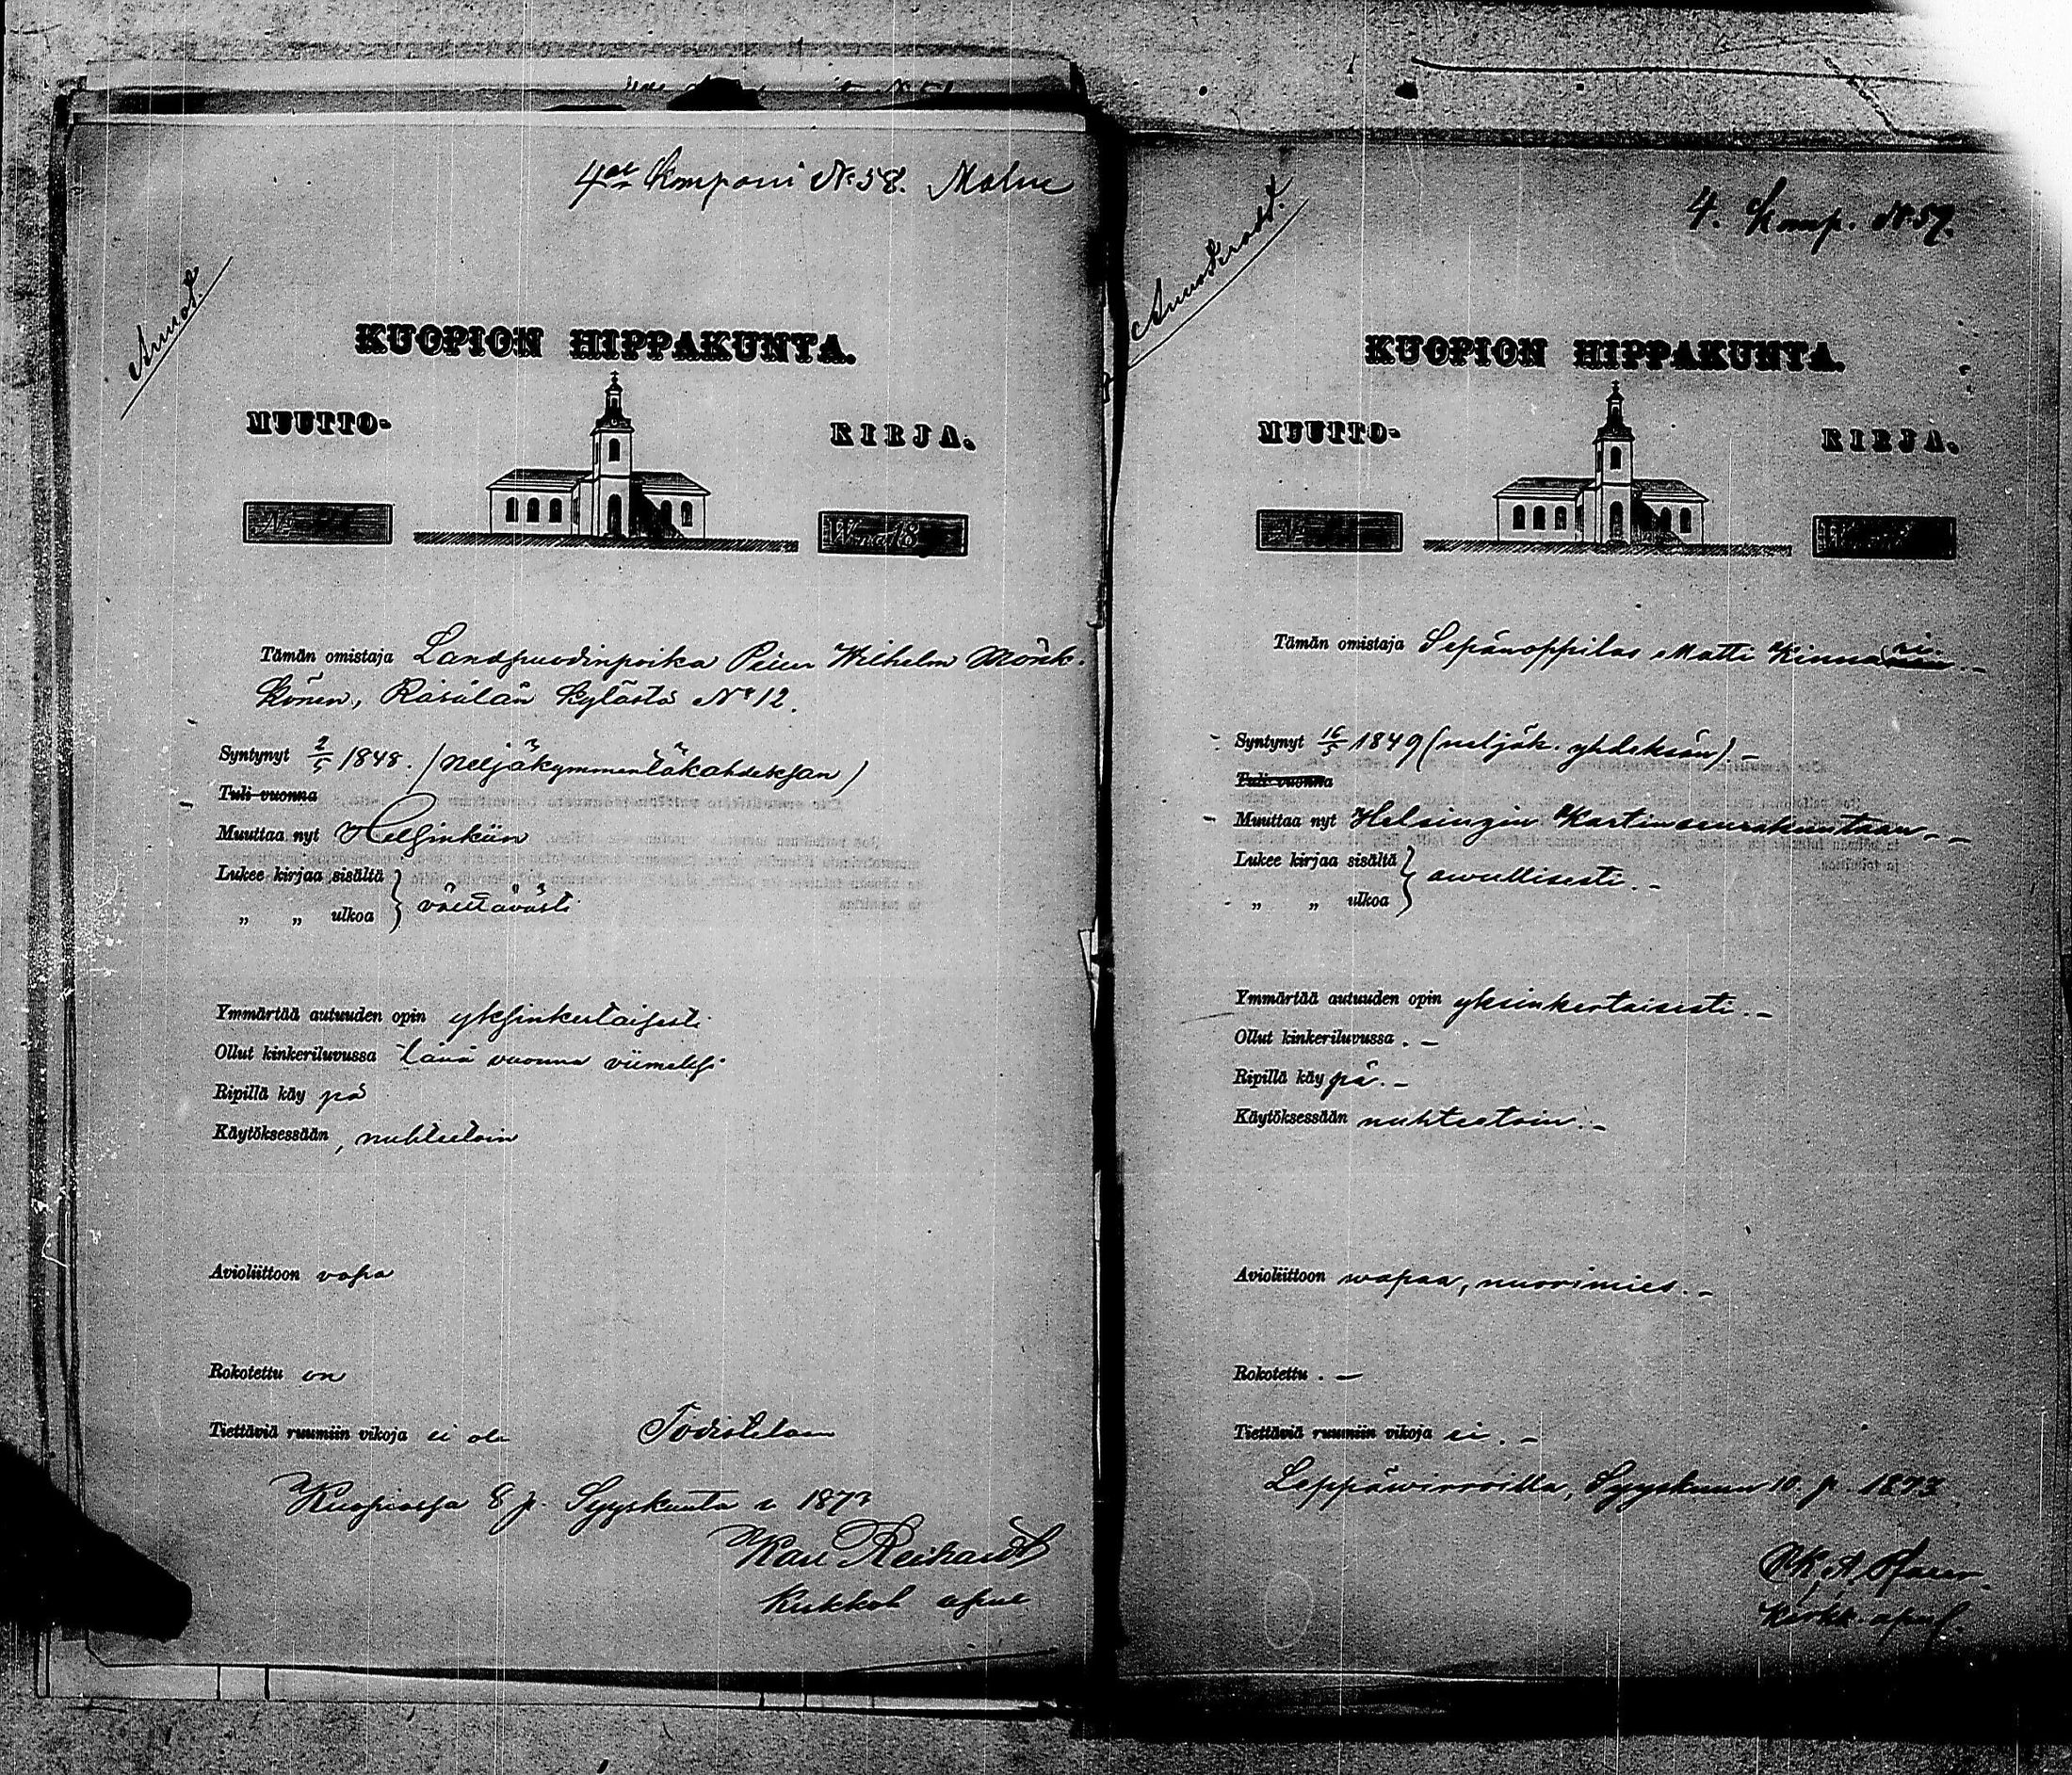 4de Kompani No 58. Malm
Annot.
KUOPION HIPPAKUNTA.
MUUTTO- KIRJA.
No W:na 18
Tämän omistaja Landpuodinpoika Wilhelm Mönk-
könen, Räsälän kylästä No 12.
Syntynyt 2/5 1848. (neljäkymmentäkahdeksan)
Tuli vuonna
Muuttaa nyt Helsinkiin
Lukee kirjaa sisältä
„ „ ulkoa } välttävästi
Ymmärtää autuuden opin yksinkertaisesti
Ollut kinkeriluvussa tänä vuonna viimeksi
Ripillä käy pä
Käytöksessään, nuhteetoin
Avioliittoon vapa
Rokotettu on
Tiettäviä ruumiin vikoja ei ole Todistetaan
Kuopiossa 8 p. Syyskuuta v 1873
Karl
apul
4. Komp. No 57.
Annoterad.
KUOPION HIPPAKUNTA.
MUUTTO- KIRJA.
Tämän omistaja Sepänoppilas Matti Kinnanen ni.
Syntynyt 16/5 1849 (neljäk. yhdeksän). –
Tuli vuonna
Muuttaa nyt Helsingin Kaartinseurakuntaan. –
Lukee kirjaa sisältä
„ „ ulkoa } awullisesti. –
Ymmärtää autuuden opin yksinkertaisesti. –
Ollut kinkeriluvussa . –
Ripillä käy pä. –
Käytöksessään nuhteetoin. –
Avioliittoon wapaa, nuorimies. –
Rokotettu . –
Tiettäviä ruumiin vikoja ei. –
Leppäwirroilla, Syyskuun 10. p. 1873.
K. A.
Kirkk. apul.